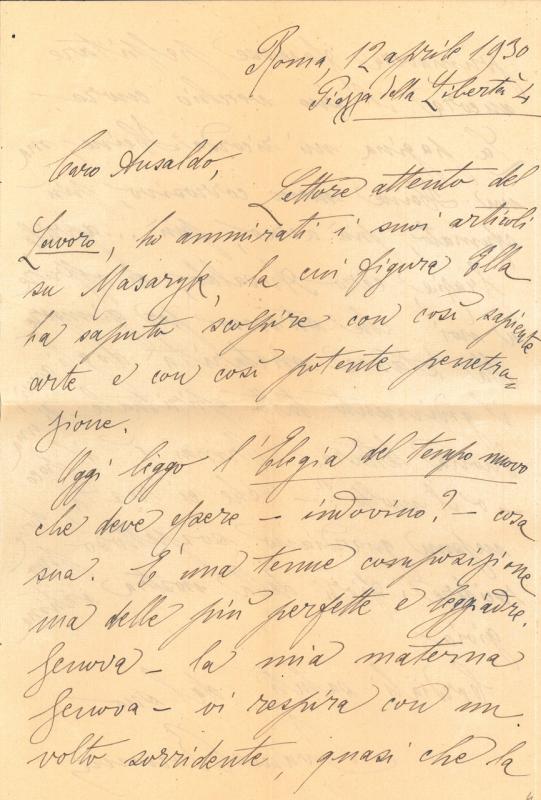 Roma, 12 aprile 1930
Piazza della Libertà 4
Caro Ansaldo,
Lettore attento del
Lavoro, ho ammirati i suoi articoli
su Masaryk, la cui figura Ella
ha saputo scolpire con così sapiente
arte e con così potente penetra-
zione.
Oggi leggo l'Elegia del tempo nuovo
che deve essere - indovino? - cosa
sua. È una tenue composizione
ma delle più perfette e leggiadre.
Genova - la mia materna
Genova - vi respira con un
volto sorridente, quasi che la